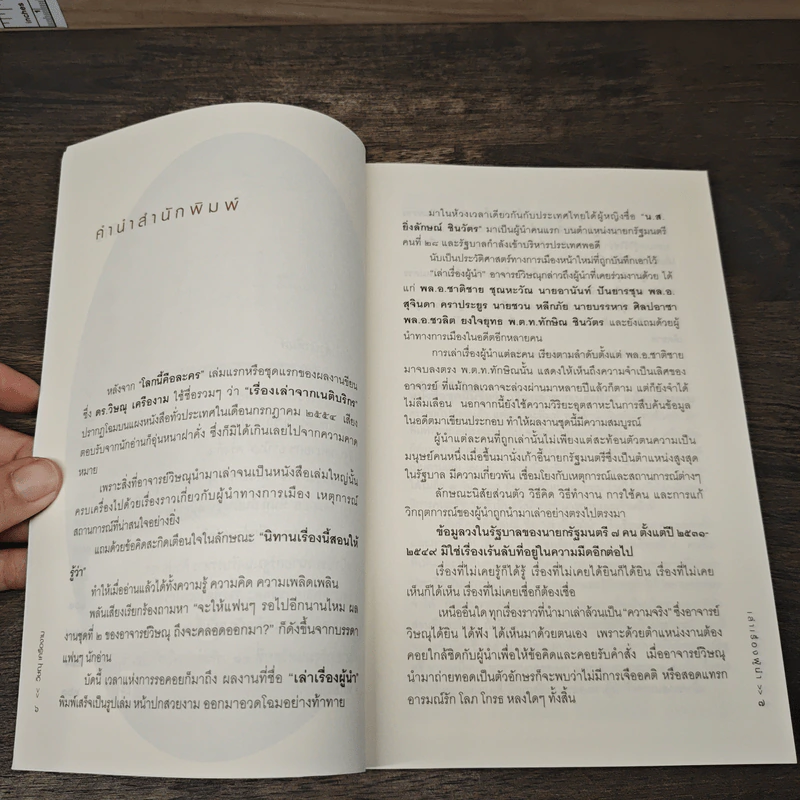 คำนำสำนักพิมพ์
หลังจาก "โลกนี้คือละคร" เล่มแรกหรือชุดแรกของผลงานเขียน
ซึ่ง ดร.วิษณุ เครืองาม ใช้ชื่อรวมๆ ว่า "เรื่องเล่าจากเนติบริกร"
ปรากฏโฉมบนแผงหนังสือทั่วประเทศในเดือนกรกฎาคม ๒๕๕๔ เสียง
ตอบรับจากนักอ่านก็อุ่นหนาฝาคั่ง ซึ่งก็มิได้เกินเลยไปจากความคาด
หมาย
เพราะสิ่งที่อาจารย์วิษณุนำมาเล่าจนเป็นหนังสือเล่มใหญ่นั้น
ครบเครื่องไปด้วยเรื่องราวเกี่ยวกับผู้นำทางการเมือง เหตุการณ์
สถานการณ์ที่น่าสนใจอย่างยิ่ง
แถมด้วยข้อคิดสะกิดเตือนใจในลักษณะ "นิทานเรื่องนี้สอนให้
รู้ว่า"
ทำให้เมื่ออ่านแล้วได้ทั้งความรู้ ความคิด ความเพลิดเพลิน
พลันเสียงเรียกร้องถามหา "จะให้แฟนๆ รอไปอีกนานไหม ผล
งานชุดที่ ๒ ของอาจารย์วิษณุ ถึงจะคลอดออกมา?" ก็ดังขึ้นจากบรรดา
แฟนๆ นักอ่าน
บัดนี้ เวลาแห่งการรอคอยก็มาถึง ผลงานที่ชื่อ "เล่าเรื่องผู้นำ"
พิมพ์เสร็จเป็นรูปเล่ม หน้าปกสวยงาม ออกมาอวดโฉมอย่างท้าทาย
วิษณุ เครืองาม >>
มาในห้วงเวลาเดียวกันกับประเทศไทยได้ผู้หญิงชื่อ "น.ส.
ยิ่งลักษณ์ ชินวัตร" มาเป็นผู้นำคนแรก บนตำแหน่งนายกรัฐมนตรี
คนที่ ๒๘ และรัฐบาลกำลังเข้าบริหารประเทศพอดี
นับเป็นประวัติศาสตร์ทางการเมืองหน้าใหม่ที่ถูกบันทึกเอาไว้
"เล่าเรื่องผู้นำ" อาจารย์วิษณุกล่าวถึงผู้นำที่เคยร่วมงานด้วย ได้
แก่ พล.อ.ชาติชาย ชุณหะวัณ นายอานันท์ ปันยารชุน พล.อ.
สุจินดา คราประยูร นายชวน หลีกภัย นายบรรหาร ศิลปอาชา
พล.อ.ชวลิต ยงใจยุทธ พ.ต.ท.ทักษิณ ชินวัตร และยังแถมด้วยผู้
นำทางการเมืองในอดีตอีกหลายคน
การเล่าเรื่องผู้นำแต่ละคน เรียงตามลำดับตั้งแต่ พล.อ.ชาติชาย
มาจบลงตรง พ.ต.ท.ทักษิณนั้น แสดงให้เห็นถึงความจำเป็นเลิศของ
อาจารย์ ที่แม้กาลเวลาจะล่วงผ่านมาหลายปีแล้วก็ตาม แต่ก็ยังจำได้
ไม่ลืมเลือน นอกจากนี้ยังใช้ความวิริยะอุตสาหะในการสืบค้นข้อมูล
ในอดีตมาเขียนประกอบ ทำให้ผลงานชุดนี้มีความสมบูรณ์
ผู้นำแต่ละคนที่ถูกเล่านั้นไม่เพียงแต่สะท้อนตัวตนความเป็น
มนุษย์คนหนึ่งเมื่อขึ้นมานั่งเก้าอี้นายกรัฐมนตรีซึ่งเป็นตำแหน่งสูงสุด
ในรัฐบาล มีความเกี่ยวพัน เชื่อมโยงกับเหตุการณ์และสถานการณ์ต่างๆ
ลักษณะนิสัยส่วนตัว วิธีคิด วิธีทำงาน การใช้คน และการแก้
วิกฤตการณ์ของผู้นำถูกนำมาเล่าอย่างตรงไปตรงมา
ข้อมูลวงในรัฐบาลของนายกรัฐมนตรี ๗ คน ตั้งแต่ปี ๒๕๓๑-
๒๕๔๙ มิใช่เรื่องเร้นลับที่อยู่ในความมืดอีกต่อไป
เรื่องที่ไม่เคยรู้ก็ได้รู้ เรื่องที่ไม่เคยได้ยินก็ได้ยิน เรื่องที่ไม่เคย
เห็นก็ได้เห็น เรื่องที่ไม่เคยเชื่อก็ต้องเชื่อ
เหนืออื่นใด ทุกเรื่องราวที่นำมาเล่าล้วนเป็น "ความจริง" ซึ่งอาจารย์
วิษณุได้ยิน ได้ฟัง ได้เห็นมาด้วยตนเอง เพราะด้วยตำแหน่งงานต้อง
คอยใกล้ชิดกับผู้นำเพื่อให้ข้อคิดและคอยรับคำสั่ง เมื่ออาจารย์วิษณุ
นำมาถ่ายทอดเป็นตัวอักษรก็จะพบว่าไม่มีการเจืออคติ หรือสอดแทรก
อารมณ์รัก โลภ โกรธ หลงใดๆ ทั้งสิ้น
เล่าเรื่องผู้นำ >>